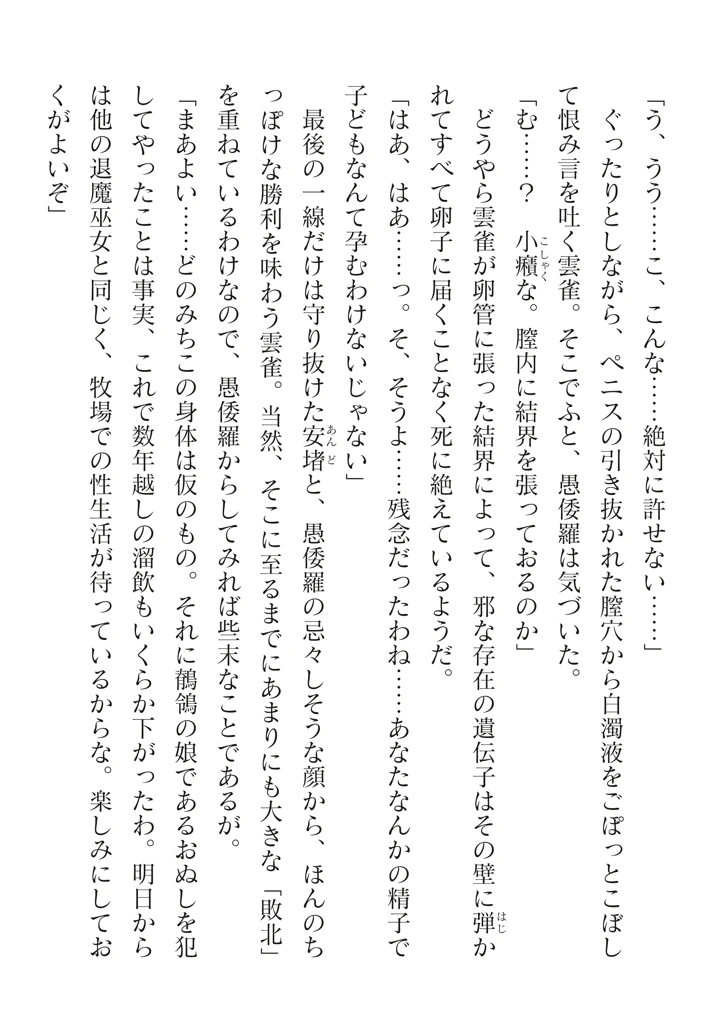 「う、うう……こ、こんな……絶対に許せない……」
ぐったりとしながら、ペニスの引き抜かれた膣穴から白濁液をごぽっとこぼし
て恨み言を吐く雲雀。そこでふと、愚倭羅は気づいた。
こしゃく
「む……？　小癪な。膣内に結界を張っておるのか」
はじ
どうやら雲雀が卵管に張った結界によって、邪な存在の遺伝子はその壁に弾か
れてすべて卵子に届くことなく死に絶えているようだ。
「はあ、はあ……っ。そ、そうよ……残念だったわね……あなたなんかの精子で
子どもなんて孕むわけないじゃない」
あんど
最後の一線だけは守り抜けた安堵と、愚倭羅の忌々しそうな顔から、ほんのち
っぽけな勝利を味わう雲雀。当然、そこに至るまでにあまりにも大きな「敗北」
を重ねているわけなので、愚倭羅からしてみれば些末なことであるが。
「まあよい……どのみちこの身体は仮のもの。それに鶺鴒の娘であるおぬしを犯
してやったことは事実、これで数年越しの溜飲もいくらか下がったわ。明日から
は他の退魔巫女と同じく、牧場での性生活が待っているからな。楽しみにしてお
くがよいぞ」